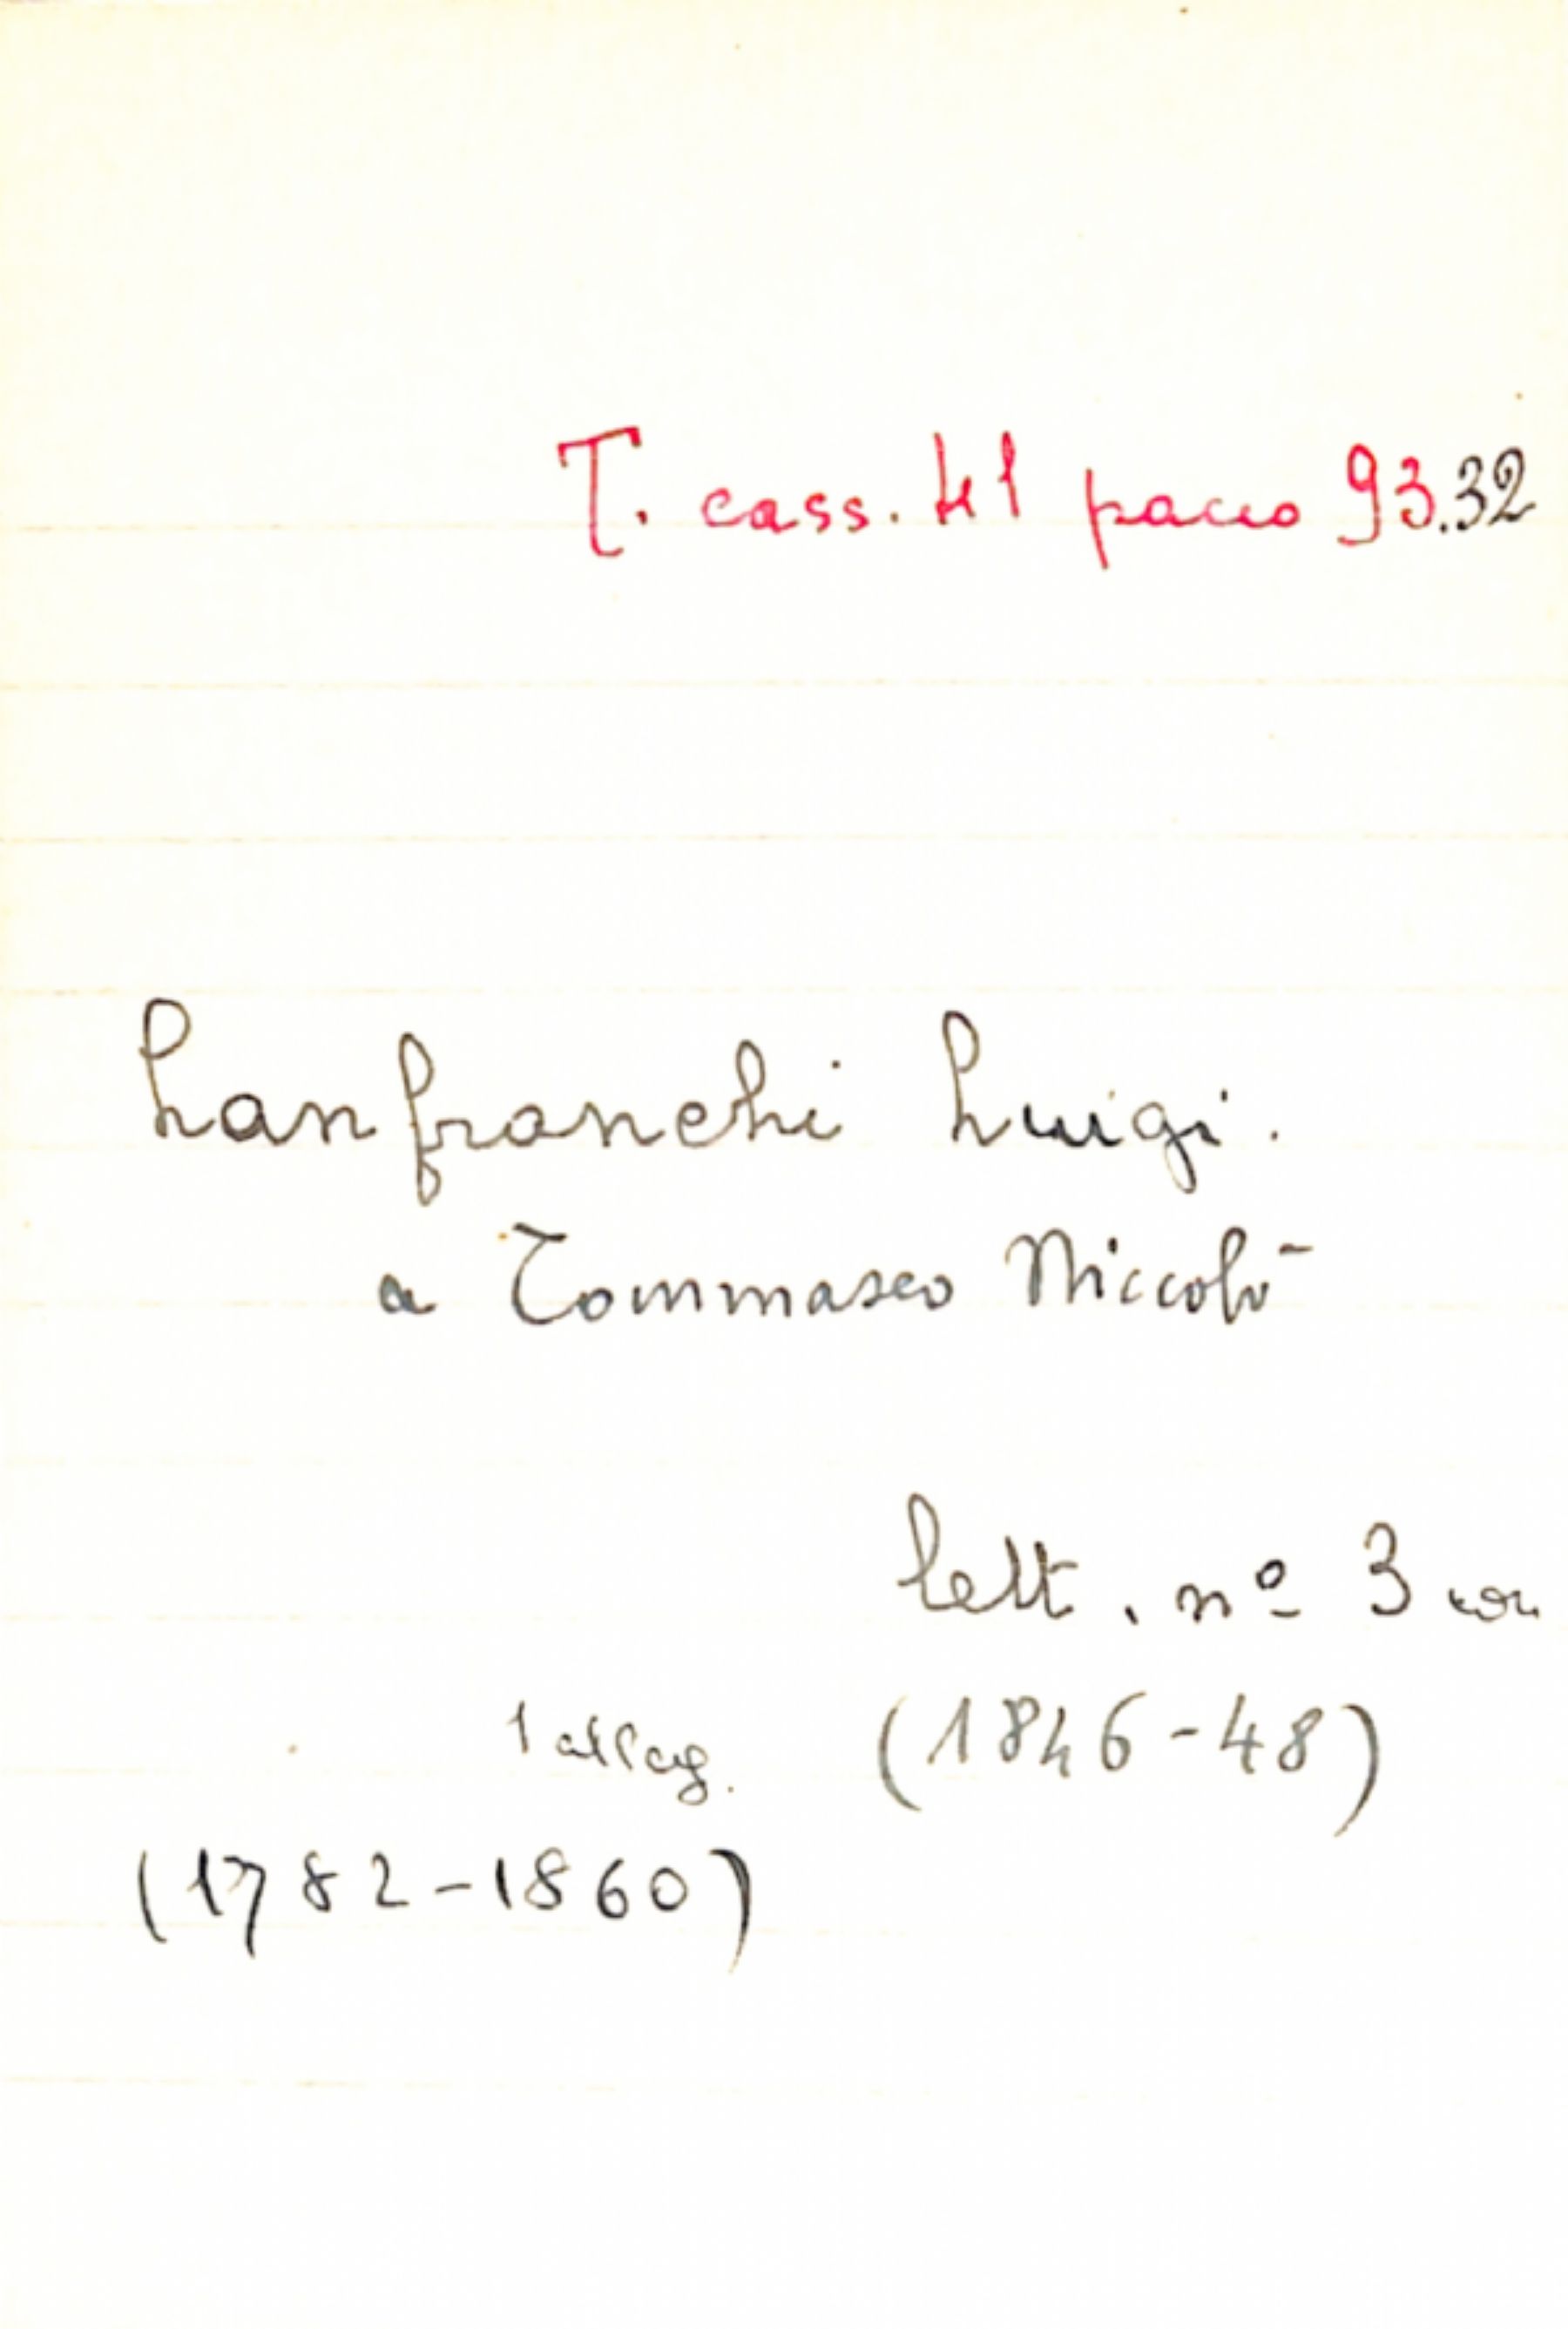 T. cass. 41 pacco 93.32
Lanfranchi Luigi.
a Tommaseo Niccolò
lett. nº 3 con
1 alleg. (1846-48)
(1782-1860)